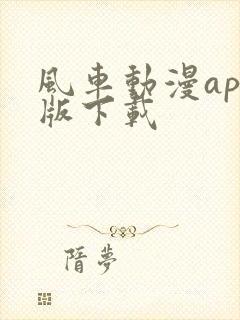 風車動漫ap
版下載
隋夢